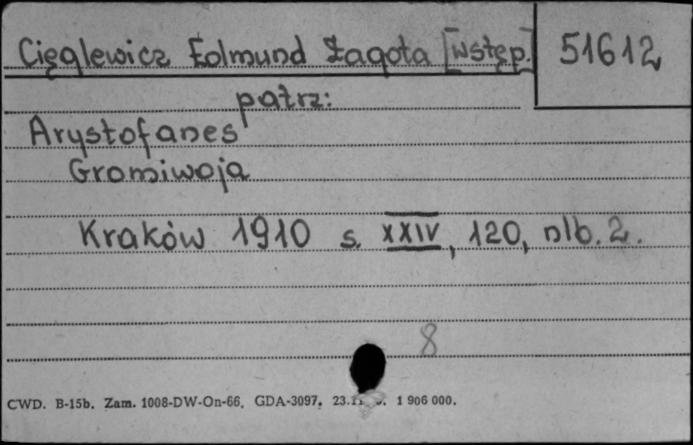 Cięglewicz Edmund Żagota [wstęp.] 51612
patrz:
Arystofanes
Gromiwoja
Kraków 1910 s. XXIV, 120, nlb. 2.
8
CWD. B-15b. Zam. 1008-DW-On-66. GDA-3097. 1 906 000.